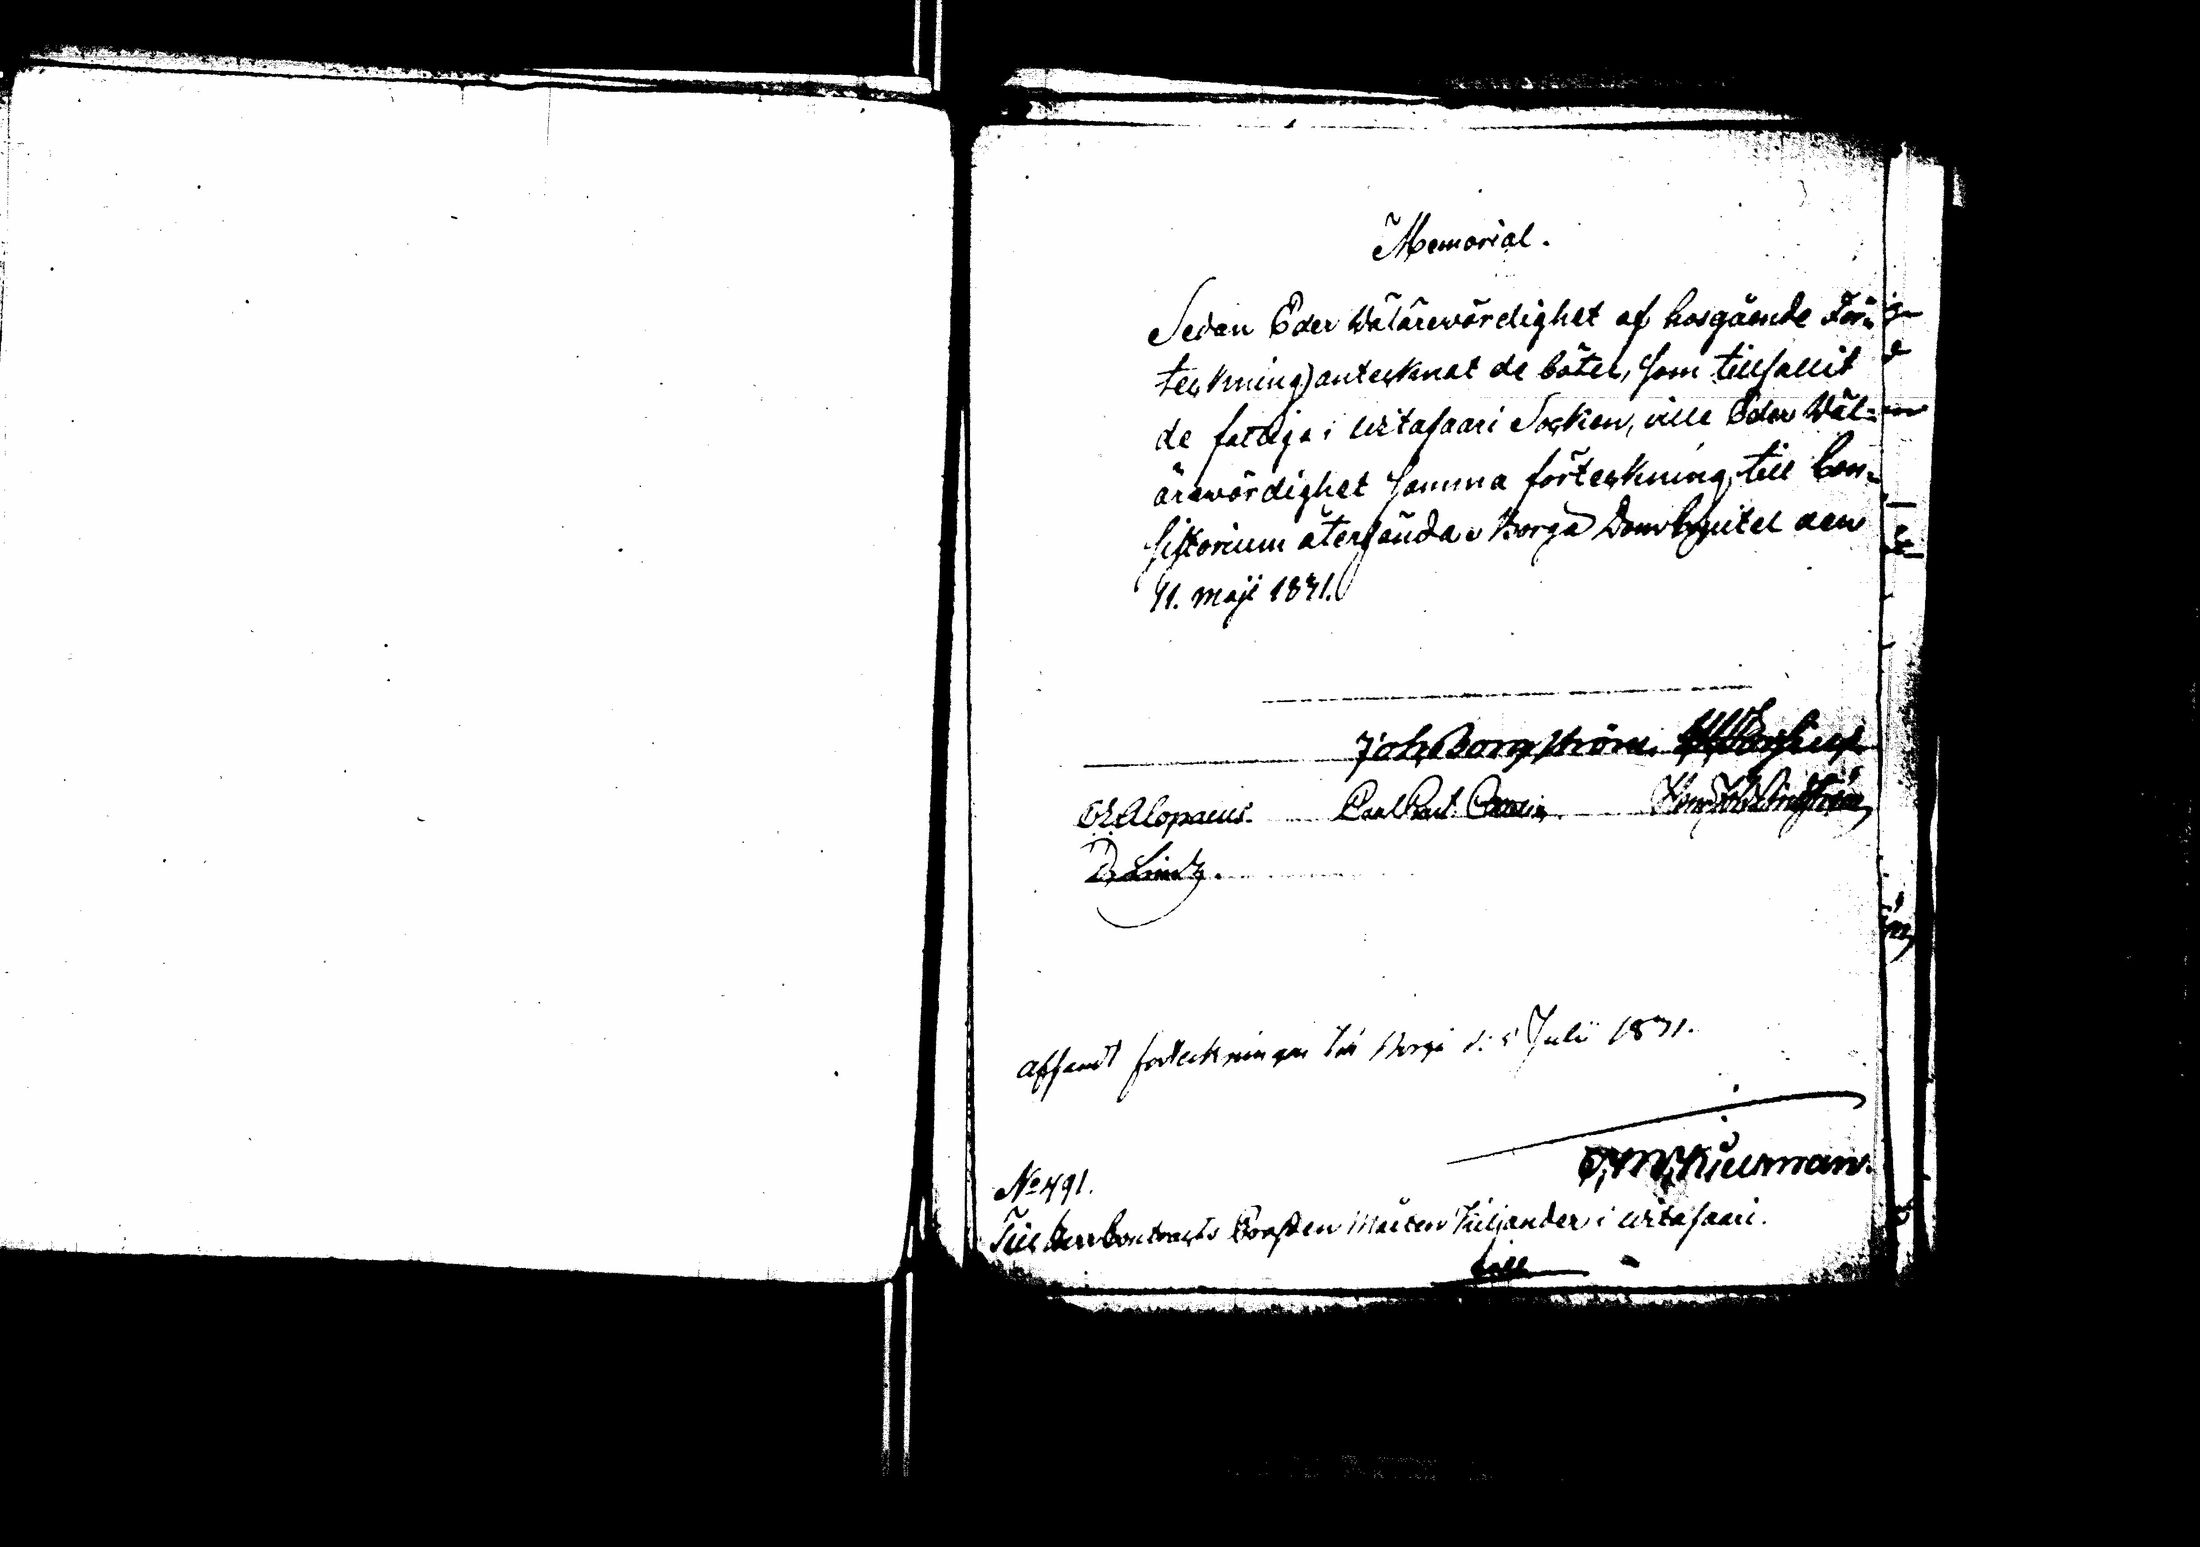 Memorial.
Sedan Eder Wälärewördighet af hosgående För-
teckning antecknat de böter, som tillfallit
de fattige i Wiitasaari Socken, ville Eder Wäl-
ärewördighet samma förteckning till Con-
sistorium återsända. Borgå Domkapitel den
11. maji 1831.
Joh. Borgström.
Alopaeus. Carl
D. Lind
Afsandt förteckningen till Borgå d: 5 Julii 1831.
Kiellman.
No 491.
Till Herr Contracts Prosten Mårten Tiliander i Wiitasaari.